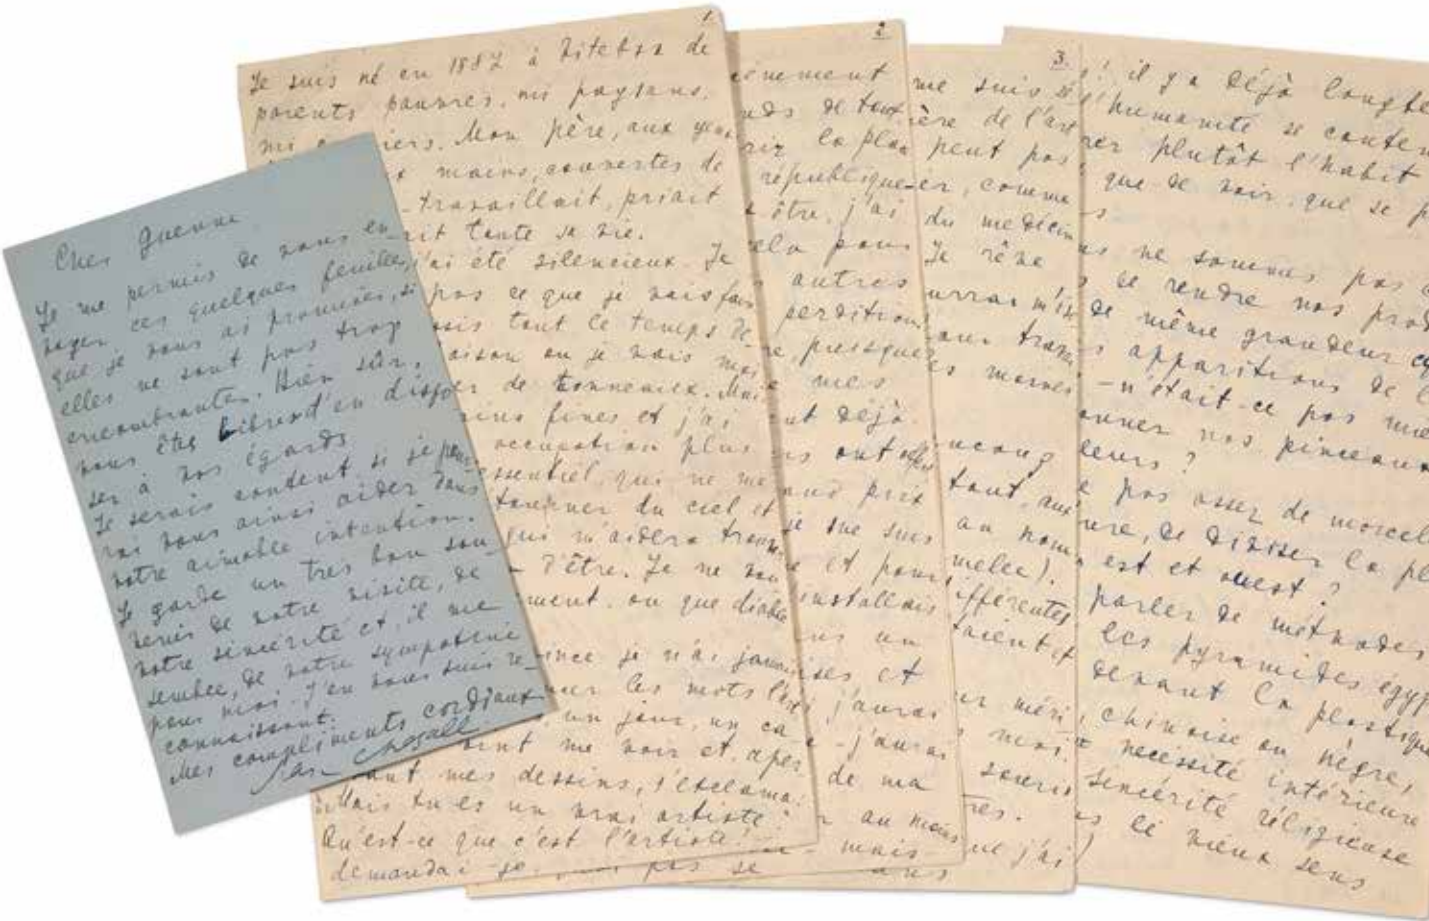 Cher Guenne
Je me permis de vous en-
voyer ces quelques feuilles,
que je vous ai promises, si
elles ne sont pas trop
encombrantes. Bien sûr,
vous être libres d'en dispo
ser à vos égards
Je serais content si je pour
rai vous ainsi aider dans
votre aimable intention.
Je garde un tres bon sou-
venir de votre visite, de
votre sincérité et, il me
semble, de votre sympathie
pour moi. J'en vous suis re-
connaissant.
Mes compliments cordiaux
Marc Chagall
1.
Je suis né en 1887 à Vitebsk de
parents pauvres, ni paysans,
ni iers. Mon père, aux yeux
mains, couvertes de
travaillait, priait
ait toute sa vie.
j'ai été silencieux. Je
pas ce que je vais fair
sais tout le temps de
aison ou je vais moi
de tonneaux. Mai
ains fines et j'ai
occupation plus
essentiel, qui ne me
tourner du ciel et
qui m'aidera trouv
d'être. Je ne sou
ment. ou que diable
ince je n'ai jamai
les mots l'art
un jour, un ca
vint me voir et, aper
vant mes dessins, s'exclama:
Mais tu es un vrai artiste!
Qu'est-ce que c'est l'artiste!
demandai-je. pas se
2
énement
nds de tout
rir la plan
république
être. j'ai
cela pour
autres
perdition
re, presque
mes
nt déjà.
ns ont offer
and prix
je me suis
e et pour
installais
un
ises et
j'aurai
- j'aurai
de ma
au moins
- mais
3.
me suis
ère de l'art
peut pas
er, comme
du médecin
Je rêve
urrai m'is
travai
es mornes
ncoup
tout, aux
au nom
melée).
ifférentes
taient et
méri
moi.
souris
res.
ue j'ai
ans
! il y a déjà longte
l'humanité se conten
rer plutôt l'habit
que de voir, que se p
s
s ne sommes pas
s de rendre nos prod
de même grandeur
s apparitions de l'
- n'était-ce pas mie
onner nos pinceaux
leurs ?
pas assez de morcel
ure, de diviser la pl
est et ouest ?
parler de méthodes
les pyramides égyp
devant la plastique
chinoise ou nègre,
nécessité intérieure
sincérité réligieuse
s le vieux sens